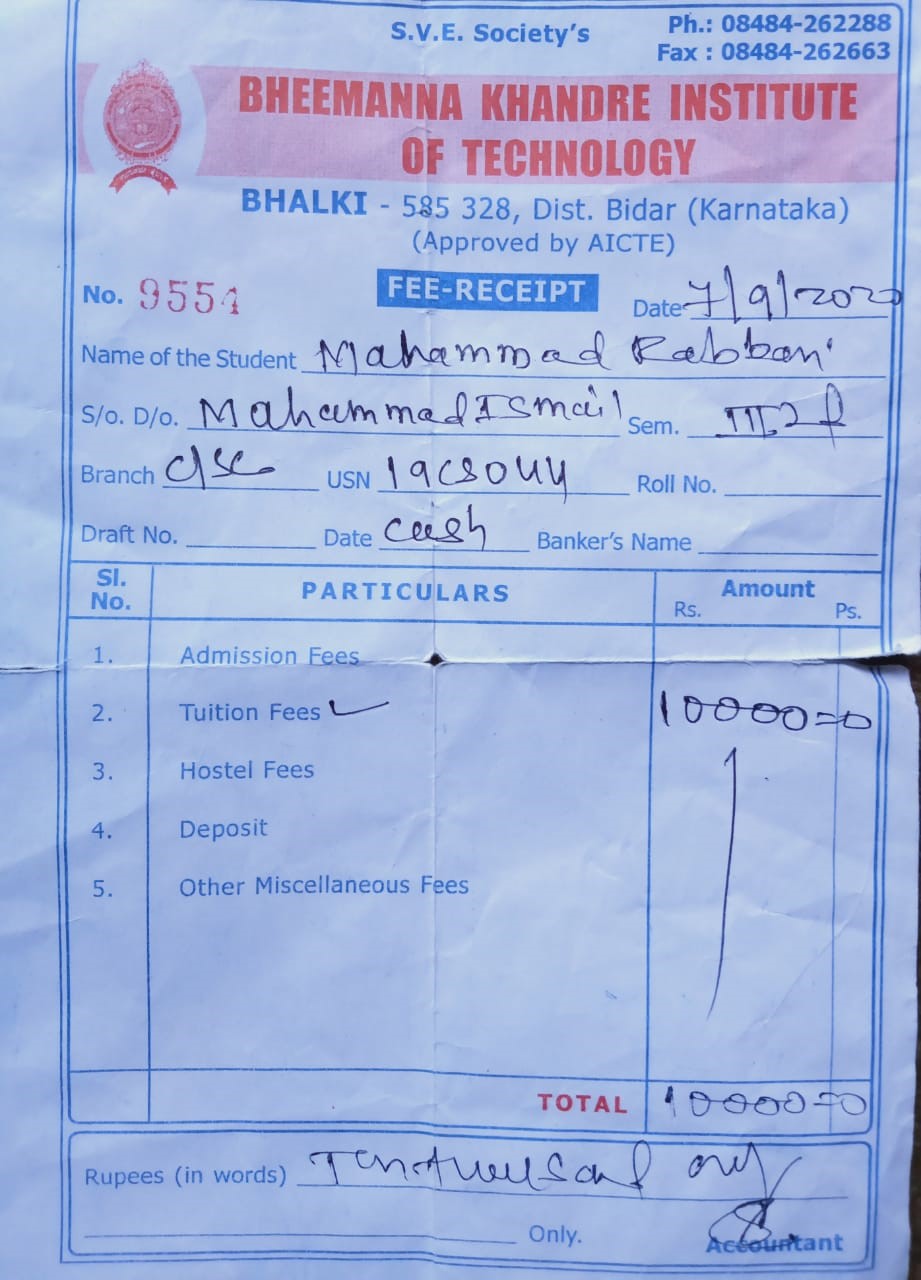 S.V.E. Society's
Ph.: 08484-262288
Fax : 08484-262663
BHEEMANNA KHANDRE INSTITUTE
OF TECHNOLOGY
BHALKI - 585 328, Dist. Bidar (Karnataka)
(Approved by AICTE)
No. 9554 FEE-RECEIPT Date 7/9/2020
Name of the Student Mahammad Rabbani
S/o. D/o. Mahammad Ismail Sem. III
Branch CSE USN 19CS044 Roll No.
Draft No. Date cash Banker's Name
Sl. No. PARTICULARS Amount Rs. Ps.
1. Admission Fees
2. Tuition Fees 10000=0
3. Hostel Fees
4. Deposit
5. Other Miscellaneous Fees
TOTAL 10000=0
Rupees (in words) Ten thousand only
Only. Accountant